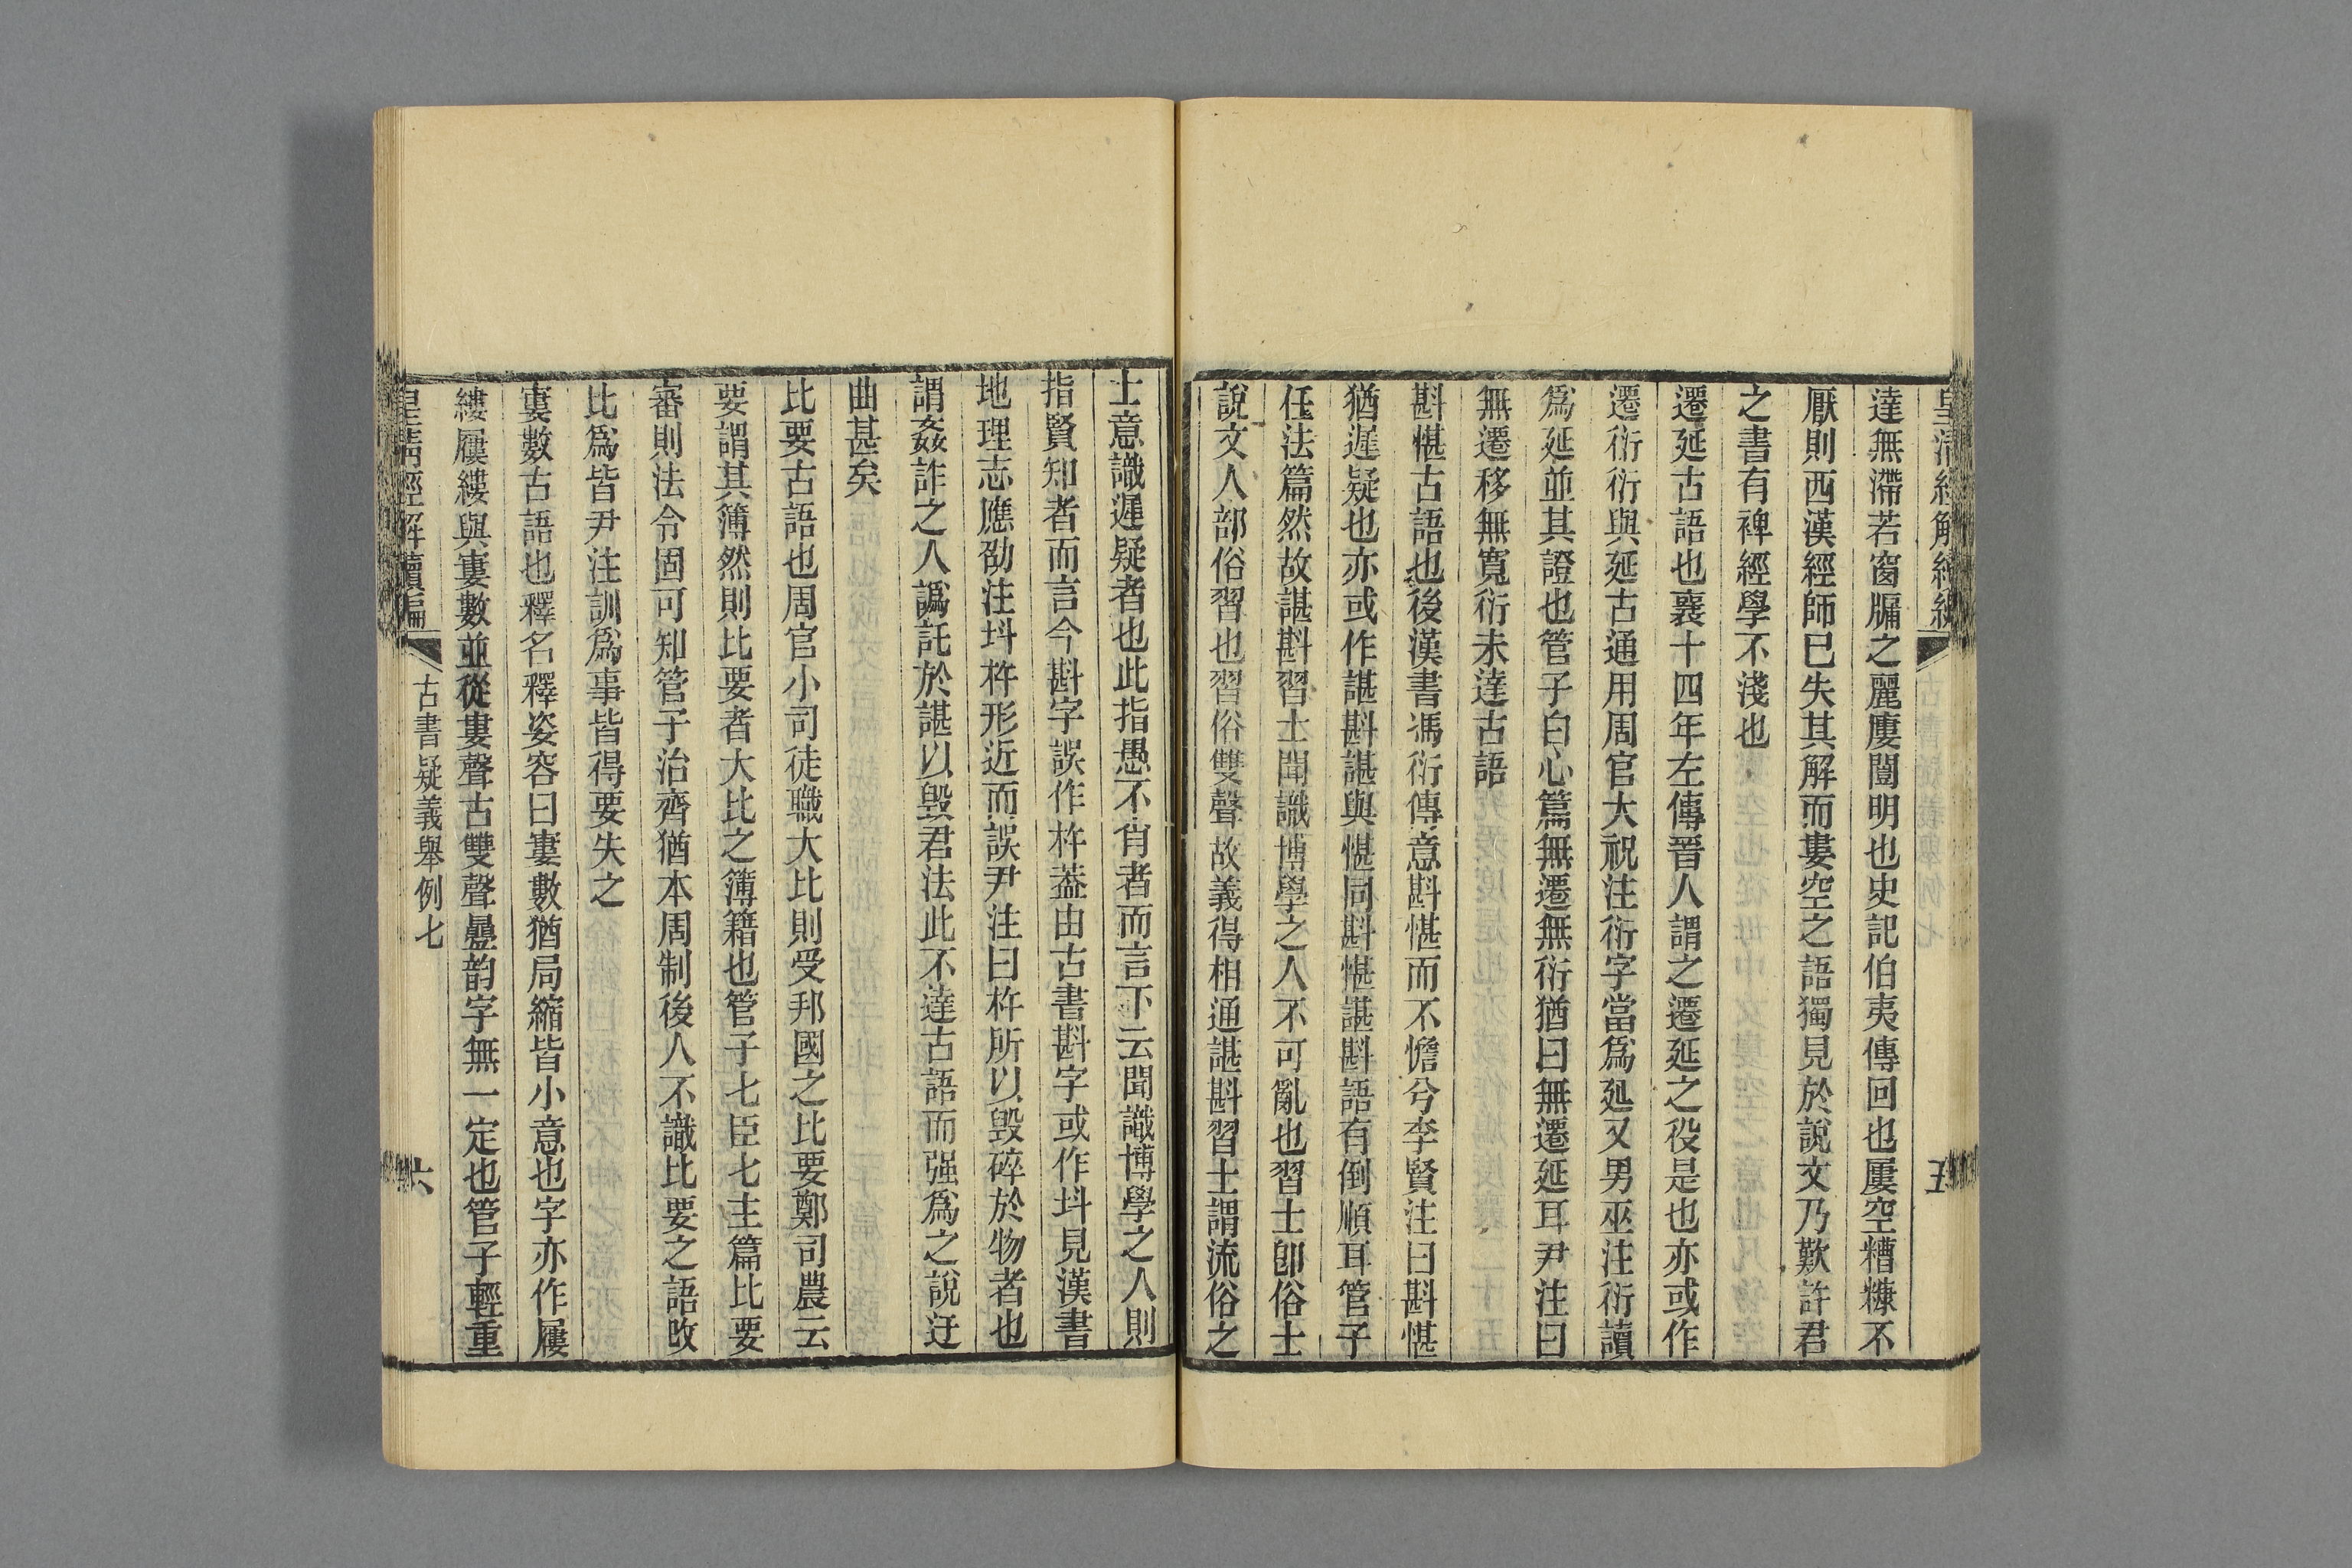 達無滯若窗牖之麗廔闓明也史記伯夷傳回也屢空糟糠不
厭則西漢經師已失其解而婁空之語獨見於說文乃歎許君
之書有裨經學不淺也
遷延古語也襄十四年左傳晉人謂之遷延之役是也亦或作
遷衍衍與延古通用周官大祝注衍字當爲延又男巫注衍讀
爲延並其證也管子白心篇無遷無衍猶曰無遷延耳尹注曰
無遷移無寬衍未達古語
斟愖古語也後漢書馮衍傳意斟愖而不憺兮李賢注曰斟愖
猶遲疑也亦或作諶斟諶與愖同斟愖諶斟語有倒順耳管子
任法篇然故諶斟習士聞識博學之人不可亂也習士卽俗士
說文人部俗習也習俗雙聲故義得相通諶斟習士謂流俗之
士意識遲疑者也此指愚不肖者而言下云聞識博學之人則
指賢知者而言今斟字誤作杵葢由古書斟字或作㪷見漢書
地理志應劭注㪷杵形近而誤尹注曰杵所以毀碎於物者也
謂姦詐之人譌託於諶以毀君法此不達古語而强爲之說迂
曲甚矣
比要古語也周官小司徒職大比則受邦國之比要鄭司農云
要謂其簿然則比要者大比之簿籍也管子七臣七主篇比要
審則法令固可知管子治齊猶本周制後人不識比要之語改
比爲皆尹注訓爲事皆得要失之
寠數古語也釋名釋姿容曰寠數猶局縮皆小意也字亦作屨
縷屨縷與寠數並從婁聲古雙聲疊韵字無一定也管子輕重
皇清經解續編
古書疑義舉例七
六